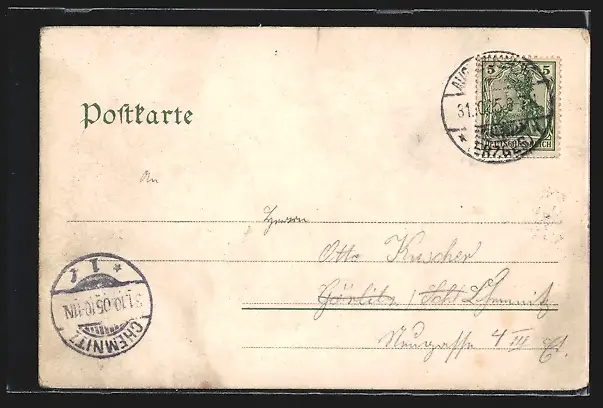 Postkarte
5 5
31.10.05.
* (ERZGEB.)
DEUTSCHES REICH
An
Herrn
Otto Kuscher
Görlitz / Schl. Chemnitz
Neugasse 4 III Et.
* 1
31.10.05.10-11N.
CHEMNITZ